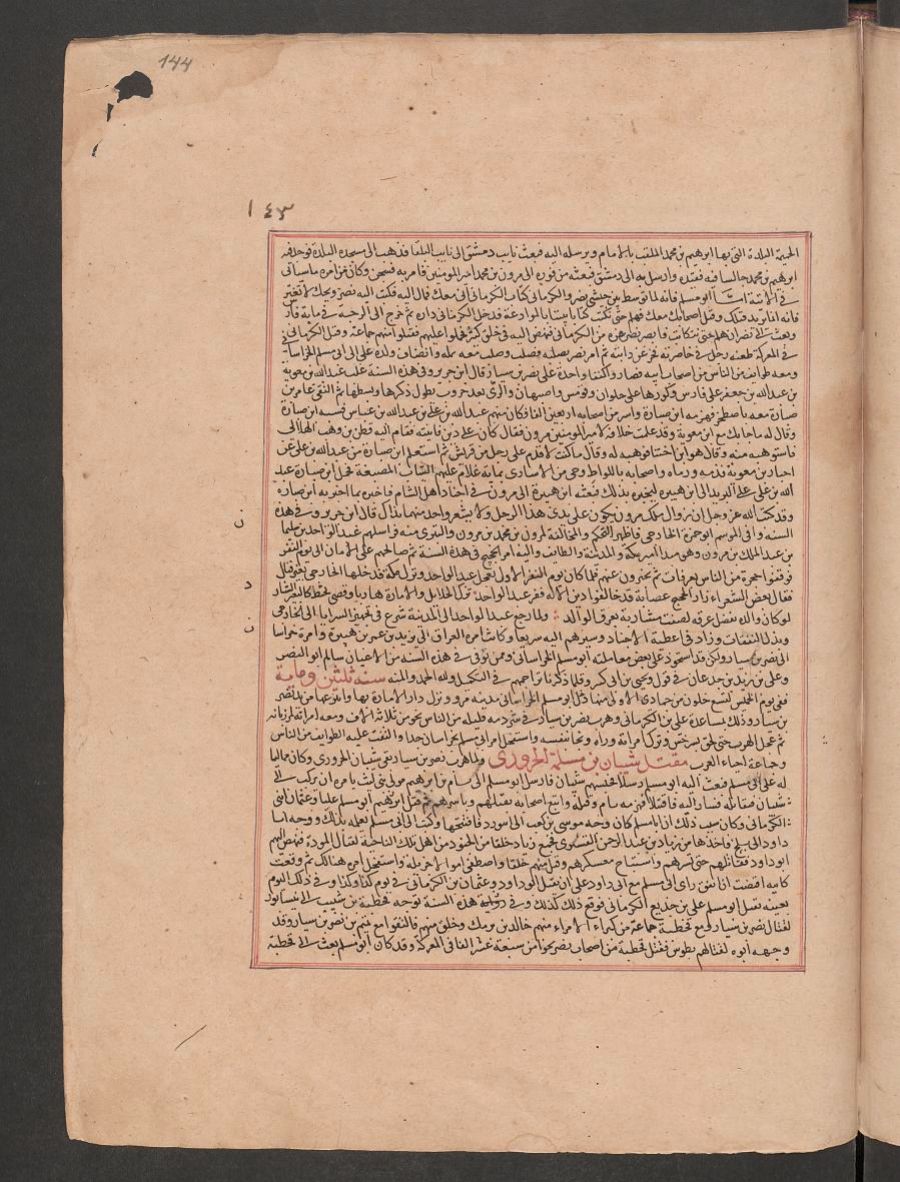 144
١٤٣
الحميمة البلدة التي بها ابرهيم بن محمد الملقب بالامام ويرسله اليه فبعث نايب دمشق الى نايب البلقا فذهب الى مسجد البلدة فوجد فيه
ابرهيم بن محمد جالسا فيه فقيده وارسل به الى دمشق فبعثه من فوره الى مرون بن محمد امير المومنين فامر به فسجن وكان من امره ما سياتي
في الاتية اما ابو مسلم فانه لما توسط بين جيشي نصر والكرماني كاتب الكرماني اني معك فمال اليه فكتب اليه نصر ويحك لا تغتر
فانه انما يريد قتلك وقتل اصحابك معك فهلم حتى نكتب كتابا بيننا بالموادعة فدخل الكرماني داره ثم خرج الى الرحبة في ماية فارس
وبعث الى نصر ان هلم حتى نتكاتب فابصر نصر غرة من الكرماني فنهض اليه في خلق كثير فحملوا عليهم فقتلوا منهم جماعة وقتل الكرماني في
في المعركة طعنه رجل في خاصرته فخر عن دابته ثم امر نصر بصلبه فصلب وصلب معه سمكه وانضاف ولده علي الى ابي مسلم الخراساني
ومعه طوايف من الناس من اصحاب ابيه فصاروا كتفا واحدة على نصر بن سيار قال ابن جرير وفي هذه السنة غلب عبدالله بن معوية
بن عبدالله بن جعفر على فارس وكورها وعلى حلوان وقومس واصبهان والري بعد حروب يطول ذكرها وبسطها ثم التقى عامر بن
ضبارة معه باصطخر فهزمه ابن ضبارة واسر من اصحابه اربعين الفا فكان منهم عبد الله بن علي بن عبد الله بن عباس فنسبه ابن ضبارة
وقال له ما جا بك مع ابن معوية وقد علمت خلافه لامير المومنين مرون فقال كان علي دين فاتيته فقام اليه قطن بن وهب الهلالي
فاستوهبه منه وقال هو ابن اختنا فوهبه له وقال ما كنت لاقدم على رجل من قريش ثم استعلم ابن ضبارة من عبدالله بن علي عن
اخبار بن معوية فذمه ورماه واصحابه باللواط وجي من الاسارى بماية غلام عليهم الثياب المصبغة فحمل ابن ضبارة عبد
الله بن علي على البريد الى ابن هبيرة ليخبره بذلك فبعثه ابن هبيرة الى مرون في اجناد اهل الشام فاخبره بما اخبره به ابن ضبارة
وقد كتب الله عز وجل ان زوال ملك مرون يكون على يدي هذا الرجل ولا يشعر واحد منهما بذاك قال ابن جرير وفي هذه
السنة وافى الموسم ابو حمزة الخارجي فاظهر التحكم والمخالفة لمرون بن محمد بن مرون والتبري منه فراسلهم عبد الواحد بن سليمان
بن عبد الملك بن مرون وهو يوميذ امير مكة والمدينة والطايف واليه امر الحجيج في هذه السنة ثم صالحهم على الامان الى يوم النفر
فوقفوا حجرة من الناس بعرفات ثم تحيزوا عنهم فلما كان يوم النفر الاول تعجل عبد الواحد وترك مكة فدخلها الخارجي بغير قتال
فقال بعض الشعراء زار الحجيج عصابة قد خالفوا دين الاله ففر عبد الواحد ترك الحلايل والامارة هاربا ومضى يخبط كالبعير الشارد
لو كان والده تفضل عرقه لصفت مشاربه بعرق الوالد ولما رجع عبد الواحد الى المدينة شرع في تجهيز السرايا الى الخارجي
وبذل النفقات وزاد في اعطية الاجناد وسيرهم اليه سريعا وكان امر العراق الى يزيد بن عمر بن هبيرة وامرة خراسان
الى نصر بن سيار ولكن قد استحوذ على بعض معاملته ابو مسلم الخراساني وممن توفى في هذه السنة من الاعيان سالم ابو النضر
وعلي بن زيد بن جدعان في قول ويحيى بن ابي كثير وقد ذكرنا تراجمهم في التكميل ولله الحمد والمنه سنة ثلثين وماية
ففي يوم الخميس لتسع خلون من جمادى الاولى منها دخل ابو مسلم الخراساني مدينة مرو ونزل دار الامارة بها وانتزعها من يد نصر
بن سيار وذلك بمساعدة علي بن الكرماني وهرب نصر بن سيار في شرذمة قليلة من الناس نحو من ثلاثة الاف ومعه امراته المرزبانة
ثم عجل الهرب حتى لحق بسرخس وترك امراته وراه ونجا بنفسه واستفحل امر ابي مسلم بخراسان جدا والتفت عليه الطوايف من الناس
وجماعة احياء العرب مقتل شيبان بن مسلمة الحروري ولما هرب نصر بن سيار بقى شيبان الحروري وكان ممالئا
له على ابي مسلم فبعث اليه ابو مسلم رسلا فحبسهم شيبان فارسل ابو مسلم الى بسام بن ابرهيم مولى بني ليث يامره ان يركب الى
شيبان فيقاتله فسار اليه فاقتتلا فهزمه بسام وقتله واتبع اصحابه يقتلهم وياسرهم ثم قتل ابرهيم ابو مسلم عليا وعثمان ابني
الكرماني وكان سبب ذلك ان ابا مسلم كان وجه موسى بن كعب الى ابيورد فافتتحها وكتب الى ابي مسلم يعلمه بذلك ووجه ابا
داود الى بلخ فاخذها من زياد بن عبد الرحمن القشيري فجمع زياد خلقا من الجنود من اهل تلك الناحية لقتال المسودة فنهض اليهم
ابو داود فقاتلهم حتى كسرهم واستباح معسكرهم وقتل منهم خلقا واصطفى اموالا جزيلة واستفحل امره هنالك ثم وقعت
كاينة اقتضت ان اتفق راى ابي مسلم مع ابي داود على ان يقتل ابو داود عثمان بن الكرماني في يوم كذا وكذا وفي ذلك اليوم
بعينه يقتل ابو مسلم علي بن جديع الكرماني فوقع ذلك كذلك وفي هذه السنة توجه قحطبة بن شبيب الى نيسابور
لقتال نصر بن سيار ومع قحطبة جماعة من كبراء الامراء منهم خالد بن برمك وخلق منهم فالتقوا مع تميم بن نصر بن سيار وقد
وجهه ابوه لقتالهم بطوس فقتل قحطبة من اصحاب نصر نحوا من سبعة عشر الفا في المعركة وقد كان ابو مسلم بعث الى قحطبة